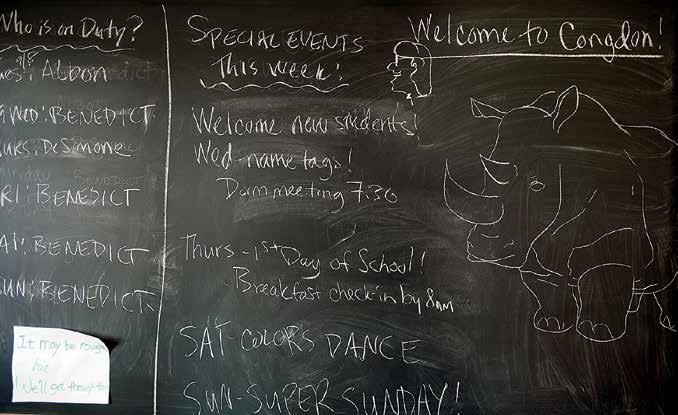 Who is on Duty?
9/8
es: Albon
Wed: BENEDICT
urs: DeSimone
RI: BENEDICT
AT: BENEDICT
UN: BENEDICT
It may be rough
but
We'll get through th
SPECIAL EVENTS
This Week!
Welcome new students!
Wed-name tags!
Dorm meeting 7:30
Thurs-1st Day of School!
Breakfast check-in by 8AM
SAT-COLORS DANCE
SUN-SUPER SUNDAY!
Welcome to Congdon!